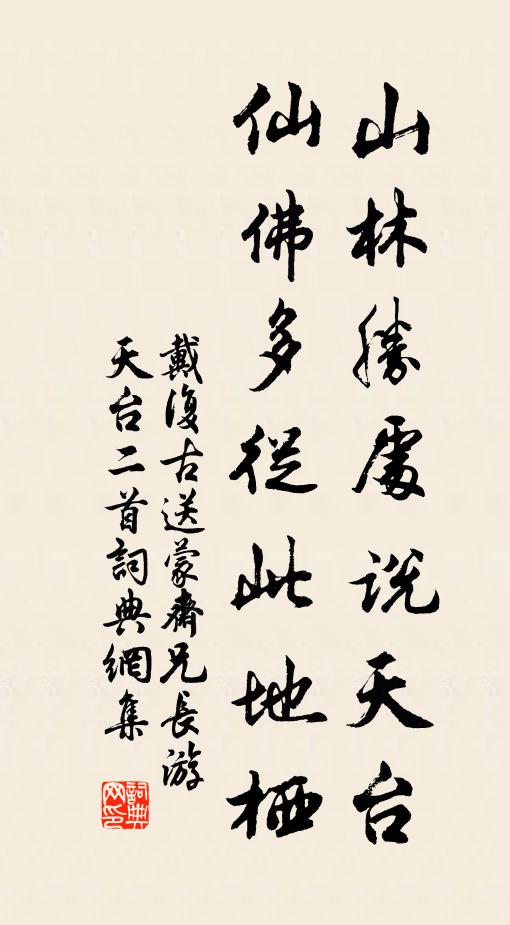 山林勝處說天台
仙佛多從此地栖
戴復古送蒙齋兄長游
天台二首詞典網集
詞典网印